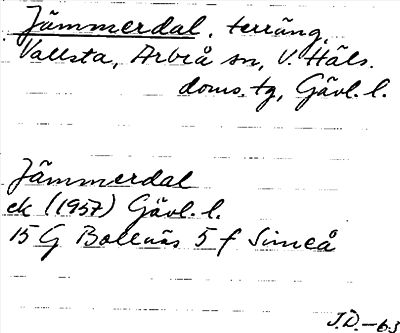 Jämmerdal, terräng,
Vallsta, Arbrå sn, V. Häls.
doms.tg, Gävl. l.
Jämmerdal
ek (1957) Gävl. l.
15 G Bollnäs 5 f Simeå
J.D.-63